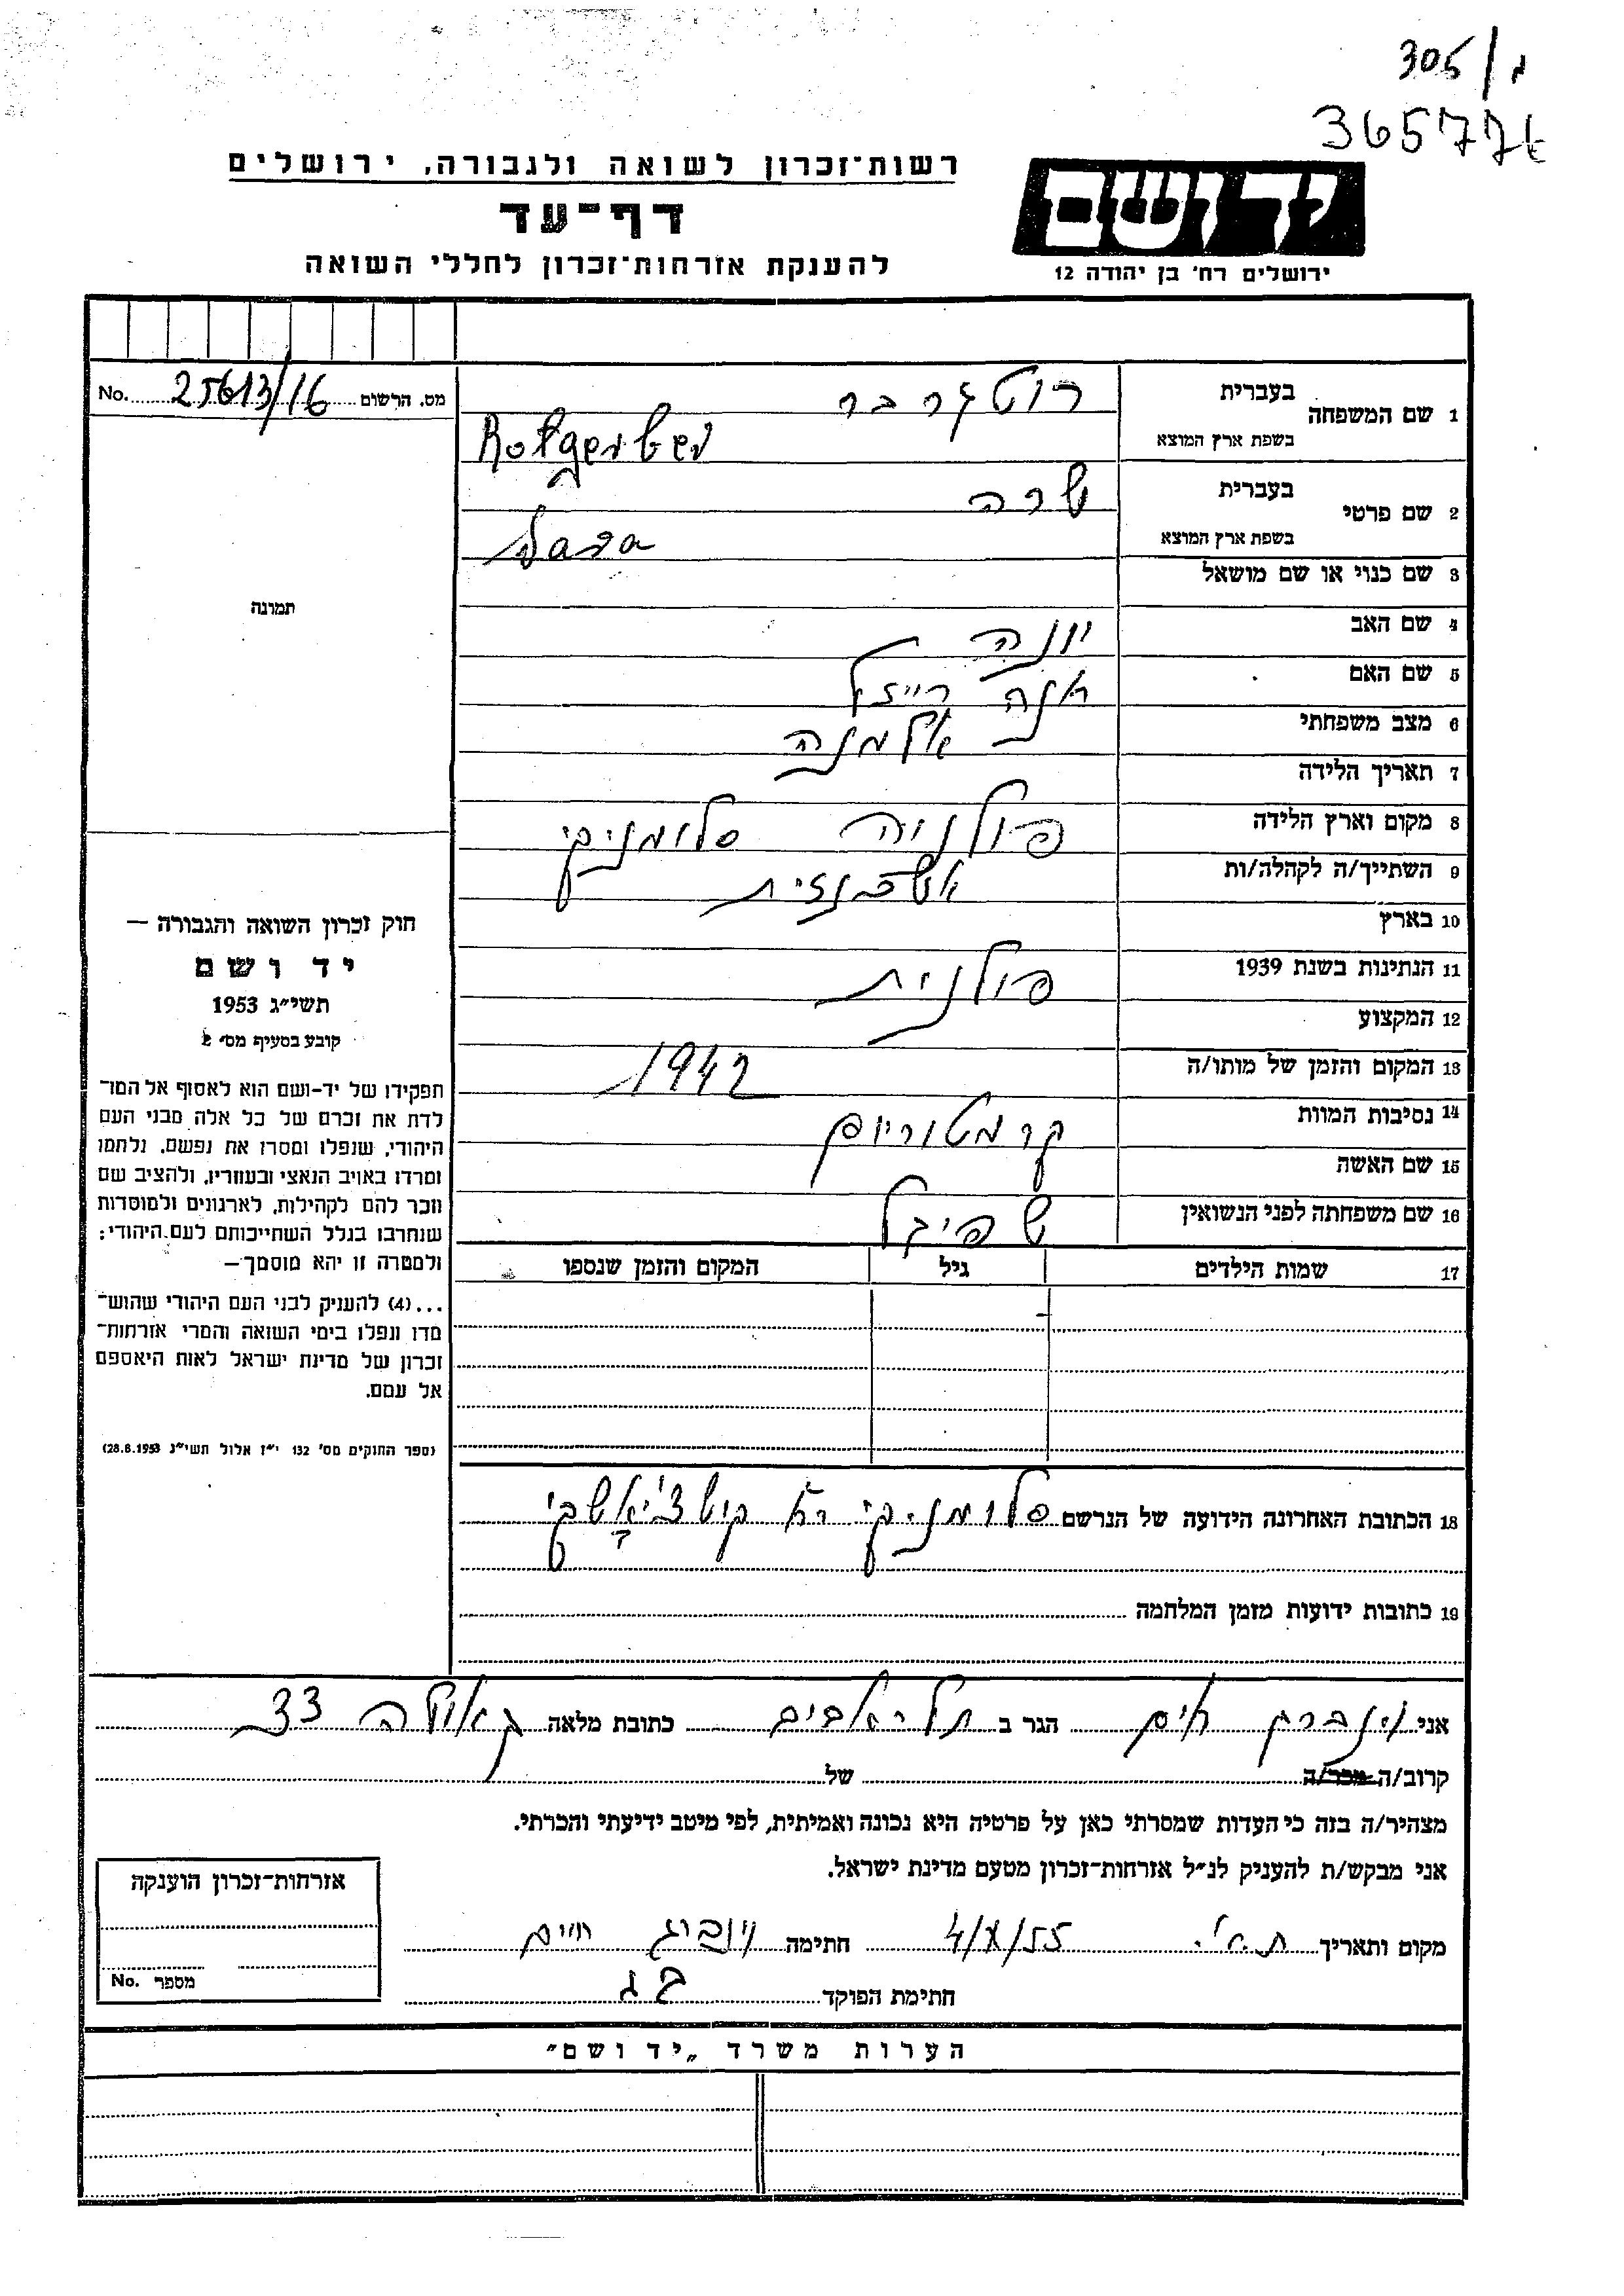 305/ג
365774
רשות־זכרון לשואה ולגבורה, ירושלים
דף־עד
להענקת אזרחות־זכרון לחללי השואה
יד ושם
ירושלים רח' בן יהודה 12
No. 25613/16 מס. הרשום
1 שם המשפחה
בעברית רוטגרבר
בשפת ארץ המוצא Rotgerber
2 שם פרטי
בעברית שרה
בשפת ארץ המוצא Sara
3 שם כנוי או שם מושאל
4 שם האב יונה
5 שם האם חנה רייזל
6 מצב משפחתי אלמנה
7 תאריך הלידה
8 מקום וארץ הלידה פולניה סלומניקי
9 השתייך/ה לקהלה/ות אשכנזית
10 בארץ
11 הנתינות בשנת 1939 פולנית
12 המקצוע
13 המקום והזמן של מותו/ה 1942
14 נסיבות המוות קרמטוריום
15 שם האשה
16 שם משפחתה לפני הנשואין שפיגל
17 שמות הילדים גיל המקום והזמן שנספו
תמונה
חוק זכרון השואה והגבורה –
יד ושם
תשי"ג 1953
קובע בסעיף מס' 2
תפקידו של יד-ושם הוא לאסוף אל המו־
לדת את זכרם של כל אלה מבני העם
היהודי, שנפלו ומסרו את נפשם, נלחמו
ומרדו באויב הנאצי ובעוזריו, ולהציב שם
וזכר להם לקהילות, לארגונים ולמוסדות
שנחרבו בגלל השתייכותם לעם היהודי;
ולמטרה זו יהא מוסמך –
...(4) להעניק לבני העם היהודי שהוש־
מדו ונפלו בימי השואה והמרי אזרחות־
זכרון של מדינת ישראל לאות היאספם
אל עמם.
(ספר החוקים מס' 132 י"ז אלול תשי"ג 28.8.1953)
18 הכתובת האחרונה הידועה של הנרשם סלומניקי
19 כתובות ידועות מזמן המלחמה
אני וינברג חיים הגר ב תל־אביב כתובת מלאה גאולה 33
קרוב/ה מכר/ה של
מצהיר/ה בזה כי העדות שמסרתי כאן על פרטיה היא נכונה ואמיתית, לפי מיטב ידיעתי והכרתי.
אני מבקש/ת להעניק לנ"ל אזרחות-זכרון מטעם מדינת ישראל.
מקום ותאריך ת.א. 4/X/55 חתימה וינברג חיים
חתימת הפוקד
אזרחות-זכרון הוענקה
No. מספר
הערות משרד „יד ושם"